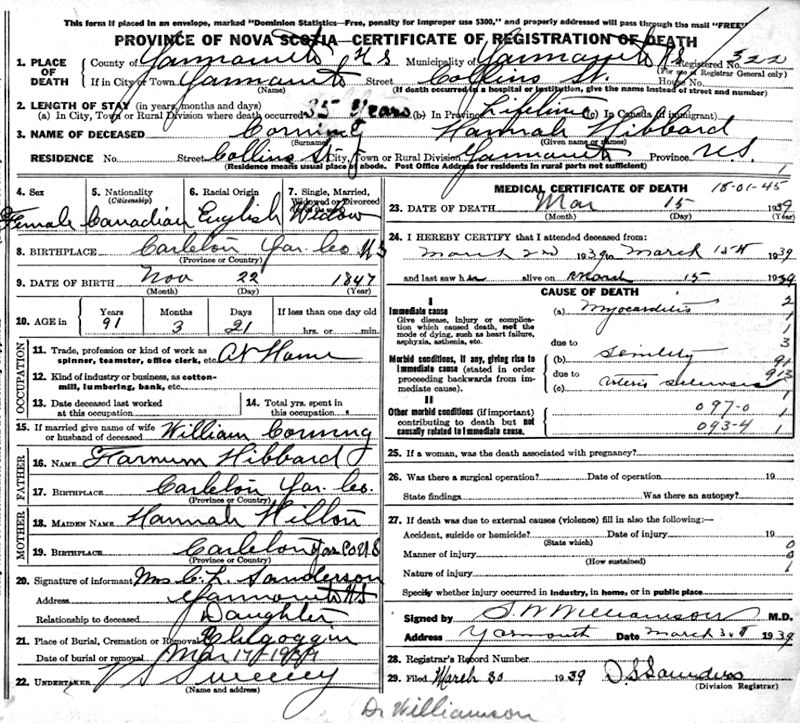 This form if placed in an envelope, marked "Dominion Statistics—Free, penalty for improper use $300," and properly addressed will pass through the mail "FREE"
PROVINCE OF NOVA SCOTIA—CERTIFICATE OF REGISTRATION OF DEATH
1. PLACE OF DEATH County of Yarmouth N S Municipality of Yarmouth Registered No. 322
(For use of Registrar General only)
If in City or Town Yarmouth Street Collins St. House No.
(Name) (If death occurred in a hospital or institution, give the name instead of street and number)
2. LENGTH OF STAY (in years, months and days)
(a) In City, Town or Rural Division where death occurred 35 Years (b) In Province Lifetime (c) In Canada (if immigrant)
3. NAME OF DECEASED Corning Hannah Hibbard
(Surname) (Given name or names)
RESIDENCE No. Street Collins St City, Town or Rural Division Yarmouth Province N.S.
(Residence means usual place of abode. Post Office Address for residents in rural parts not sufficient)
4. Sex 5. Nationality 6. Racial Origin 7. Single, Married, Widowed or Divorced
(Citizenship)
Female Canadian English Widow
8. BIRTHPLACE Carleton Yar. Co N S
(Province or Country)
9. DATE OF BIRTH Nov 22 1847
(Month) (Day) (Year)
10. AGE in Years Months Days If less than one day old
91 3 21 hrs. or min.
OCCUPATION
11. Trade, profession or kind of work as spinner, teamster, office clerk, etc. At Home
12. Kind of industry or business, as cotton-mill, lumbering, bank, etc.
13. Date deceased last worked at this occupation 14. Total yrs. spent in this occupation
15. If married give name of wife or husband of deceased William Corning
FATHER
16. NAME Farnum Hibbard
17. BIRTHPLACE Carleton Yar. Co.
(Province or Country)
MOTHER
18. MAIDEN NAME Hannah Hilton
19. BIRTHPLACE Carleton Yar Co N S
(Province or Country)
20. Signature of informant Mrs C. L. Sanderson
Address Yarmouth N S
Relationship to deceased Daughter
21. Place of Burial, Cremation or Removal Chegoggin
Date of burial or removal Mar 17 1939
22. UNDERTAKER V S Sweeney
(Name and address)
MEDICAL CERTIFICATE OF DEATH 18-01-45
23. DATE OF DEATH Mar 15 1939
(Month) (Day) (Year)
24. I HEREBY CERTIFY that I attended deceased from:
March 2nd 1939 to March 15th 1939
and last saw her alive on March 15 1939
CAUSE OF DEATH
I
Immediate cause (a) Myocarditis 2
Give disease, injury or complication which caused death, not the mode of dying, such as heart failure, asphyxia, asthenia, etc.
due to 3
Morbid conditions, if any, giving rise to immediate cause (stated in order proceeding backwards from immediate cause) (b) Senility 91
due to 913
(c) sclerosis 1
II
Other morbid conditions (if important) contributing to death but not causally related to immediate cause.
097-0 1
093-4 1
25. If a woman, was the death associated with pregnancy?
26. Was there a surgical operation? Date of operation 19
State findings Was there an autopsy?
27. If death was due to external causes (violence) fill in also the following:—
Accident, suicide or homicide? Date of injury 19
(State which) 0
Manner of injury 0
(How sustained)
Nature of injury 1
Specify whether injury occurred in industry, in home, or in public place
Signed by S W Williamson M.D.
Address Yarmouth Date March 30th 1939
28. Registrar's Record Number
29. Filed March 30 1939 D S Saunders
(Division Registrar)
Dr Williamson